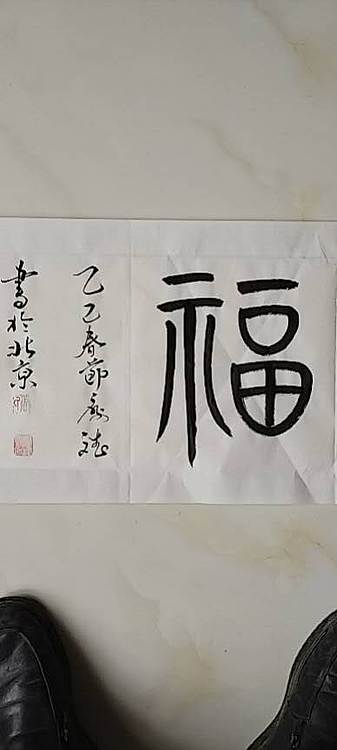 福
乙巳春節
書於北京